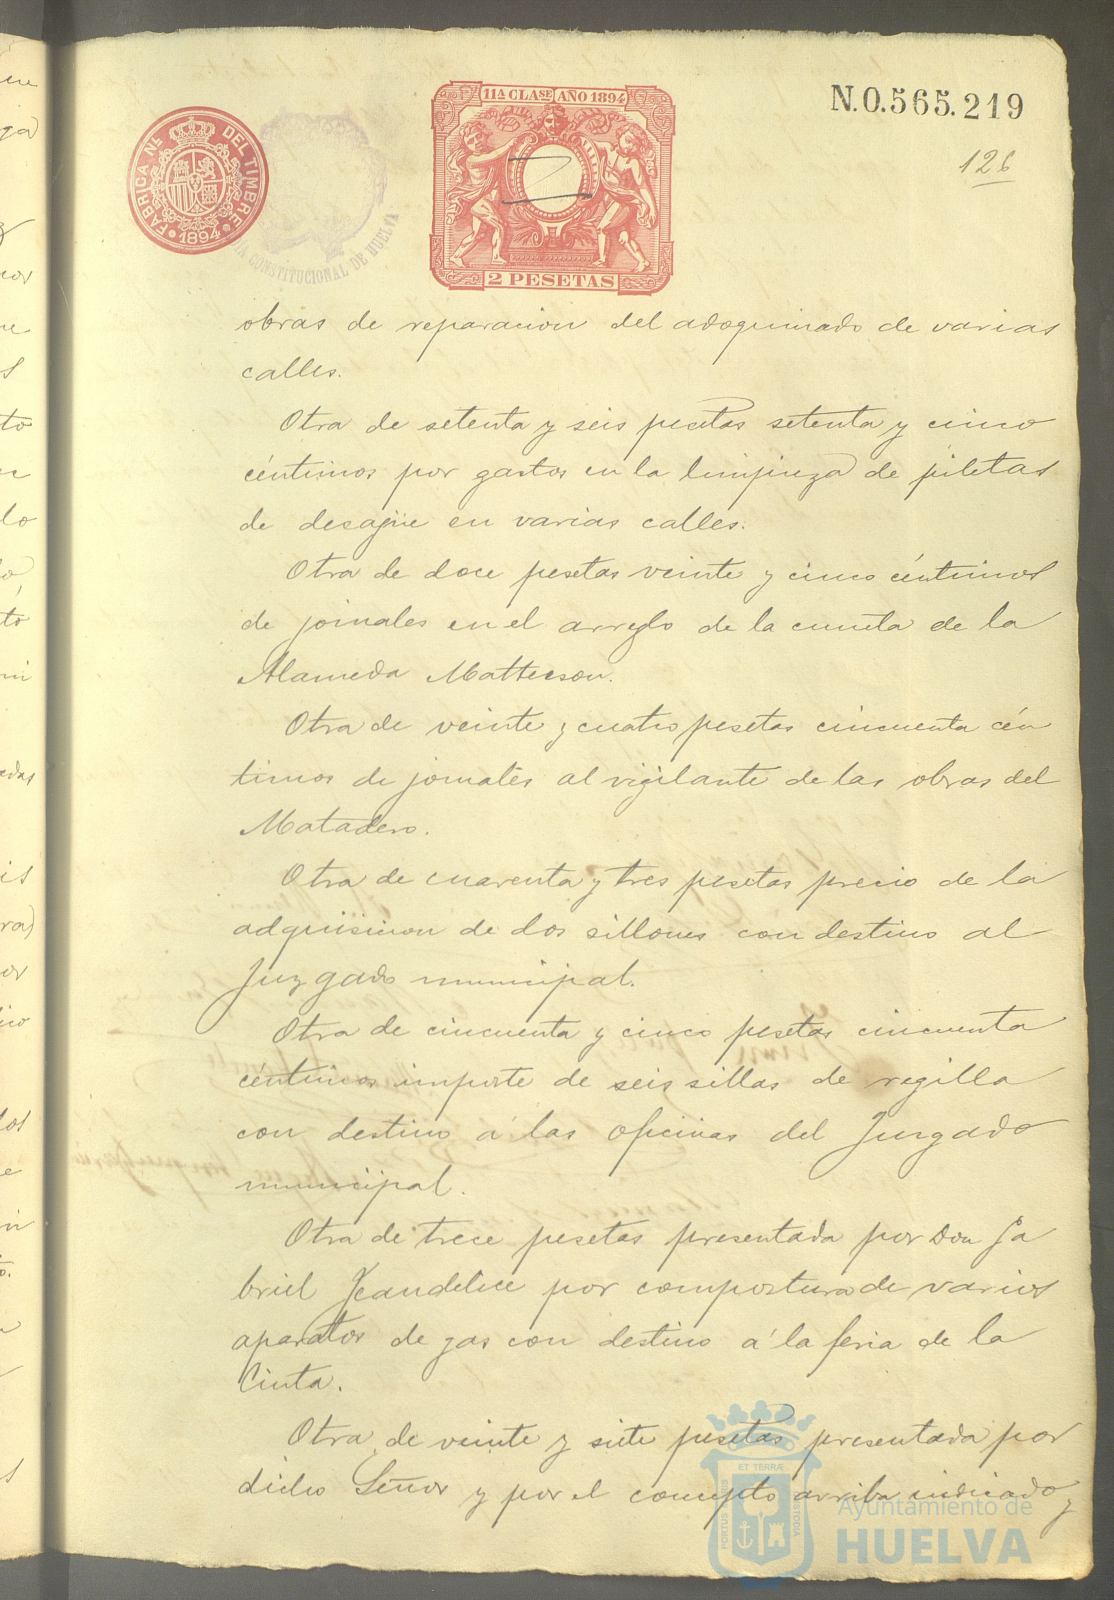 11ª CLASE AÑO 1894
N.0.565.219
FABRICA NL. DEL TIMBRE
1894
CONSTITUCIONAL DE HUELVA
2 PESETAS
126
obras de reparacion del adoquinado de varias
calles.
Otra de setenta y seis pesetas setenta y cinco
céntimos por gastos en la limpieza de piletas
de desagüe en varias calles.
Otra de doce pesetas veinte y cinco céntimos
de jornales en el arreglo de la cuneta de la
Alameda Matterson.
Otra de veinte y cuatro pesetas cincuenta cén
timos de jornales al vigilante de las obras del
Matadero.
Otra de cuarenta y tres pesetas precio de la
adquisicion de dos sillones con destino al
Juzgado municipal.
Otra de cincuenta y cinco pesetas cincuenta
céntimos importe de seis sillas de regilla
con destino á las oficinas del Juzgado
municipal.
Otra de trece pesetas presentada por Don Ga
briel por compostura de varios
aparatos de gas con destino á la feria de la
Cinta.
Otra de veinte y siete pesetas presentada por
dicho Señor y por el concepto arriba indicado y
PORTUS MARIS ET TERRÆ CUSTODIA
Ayuntamiento de
HUELVA